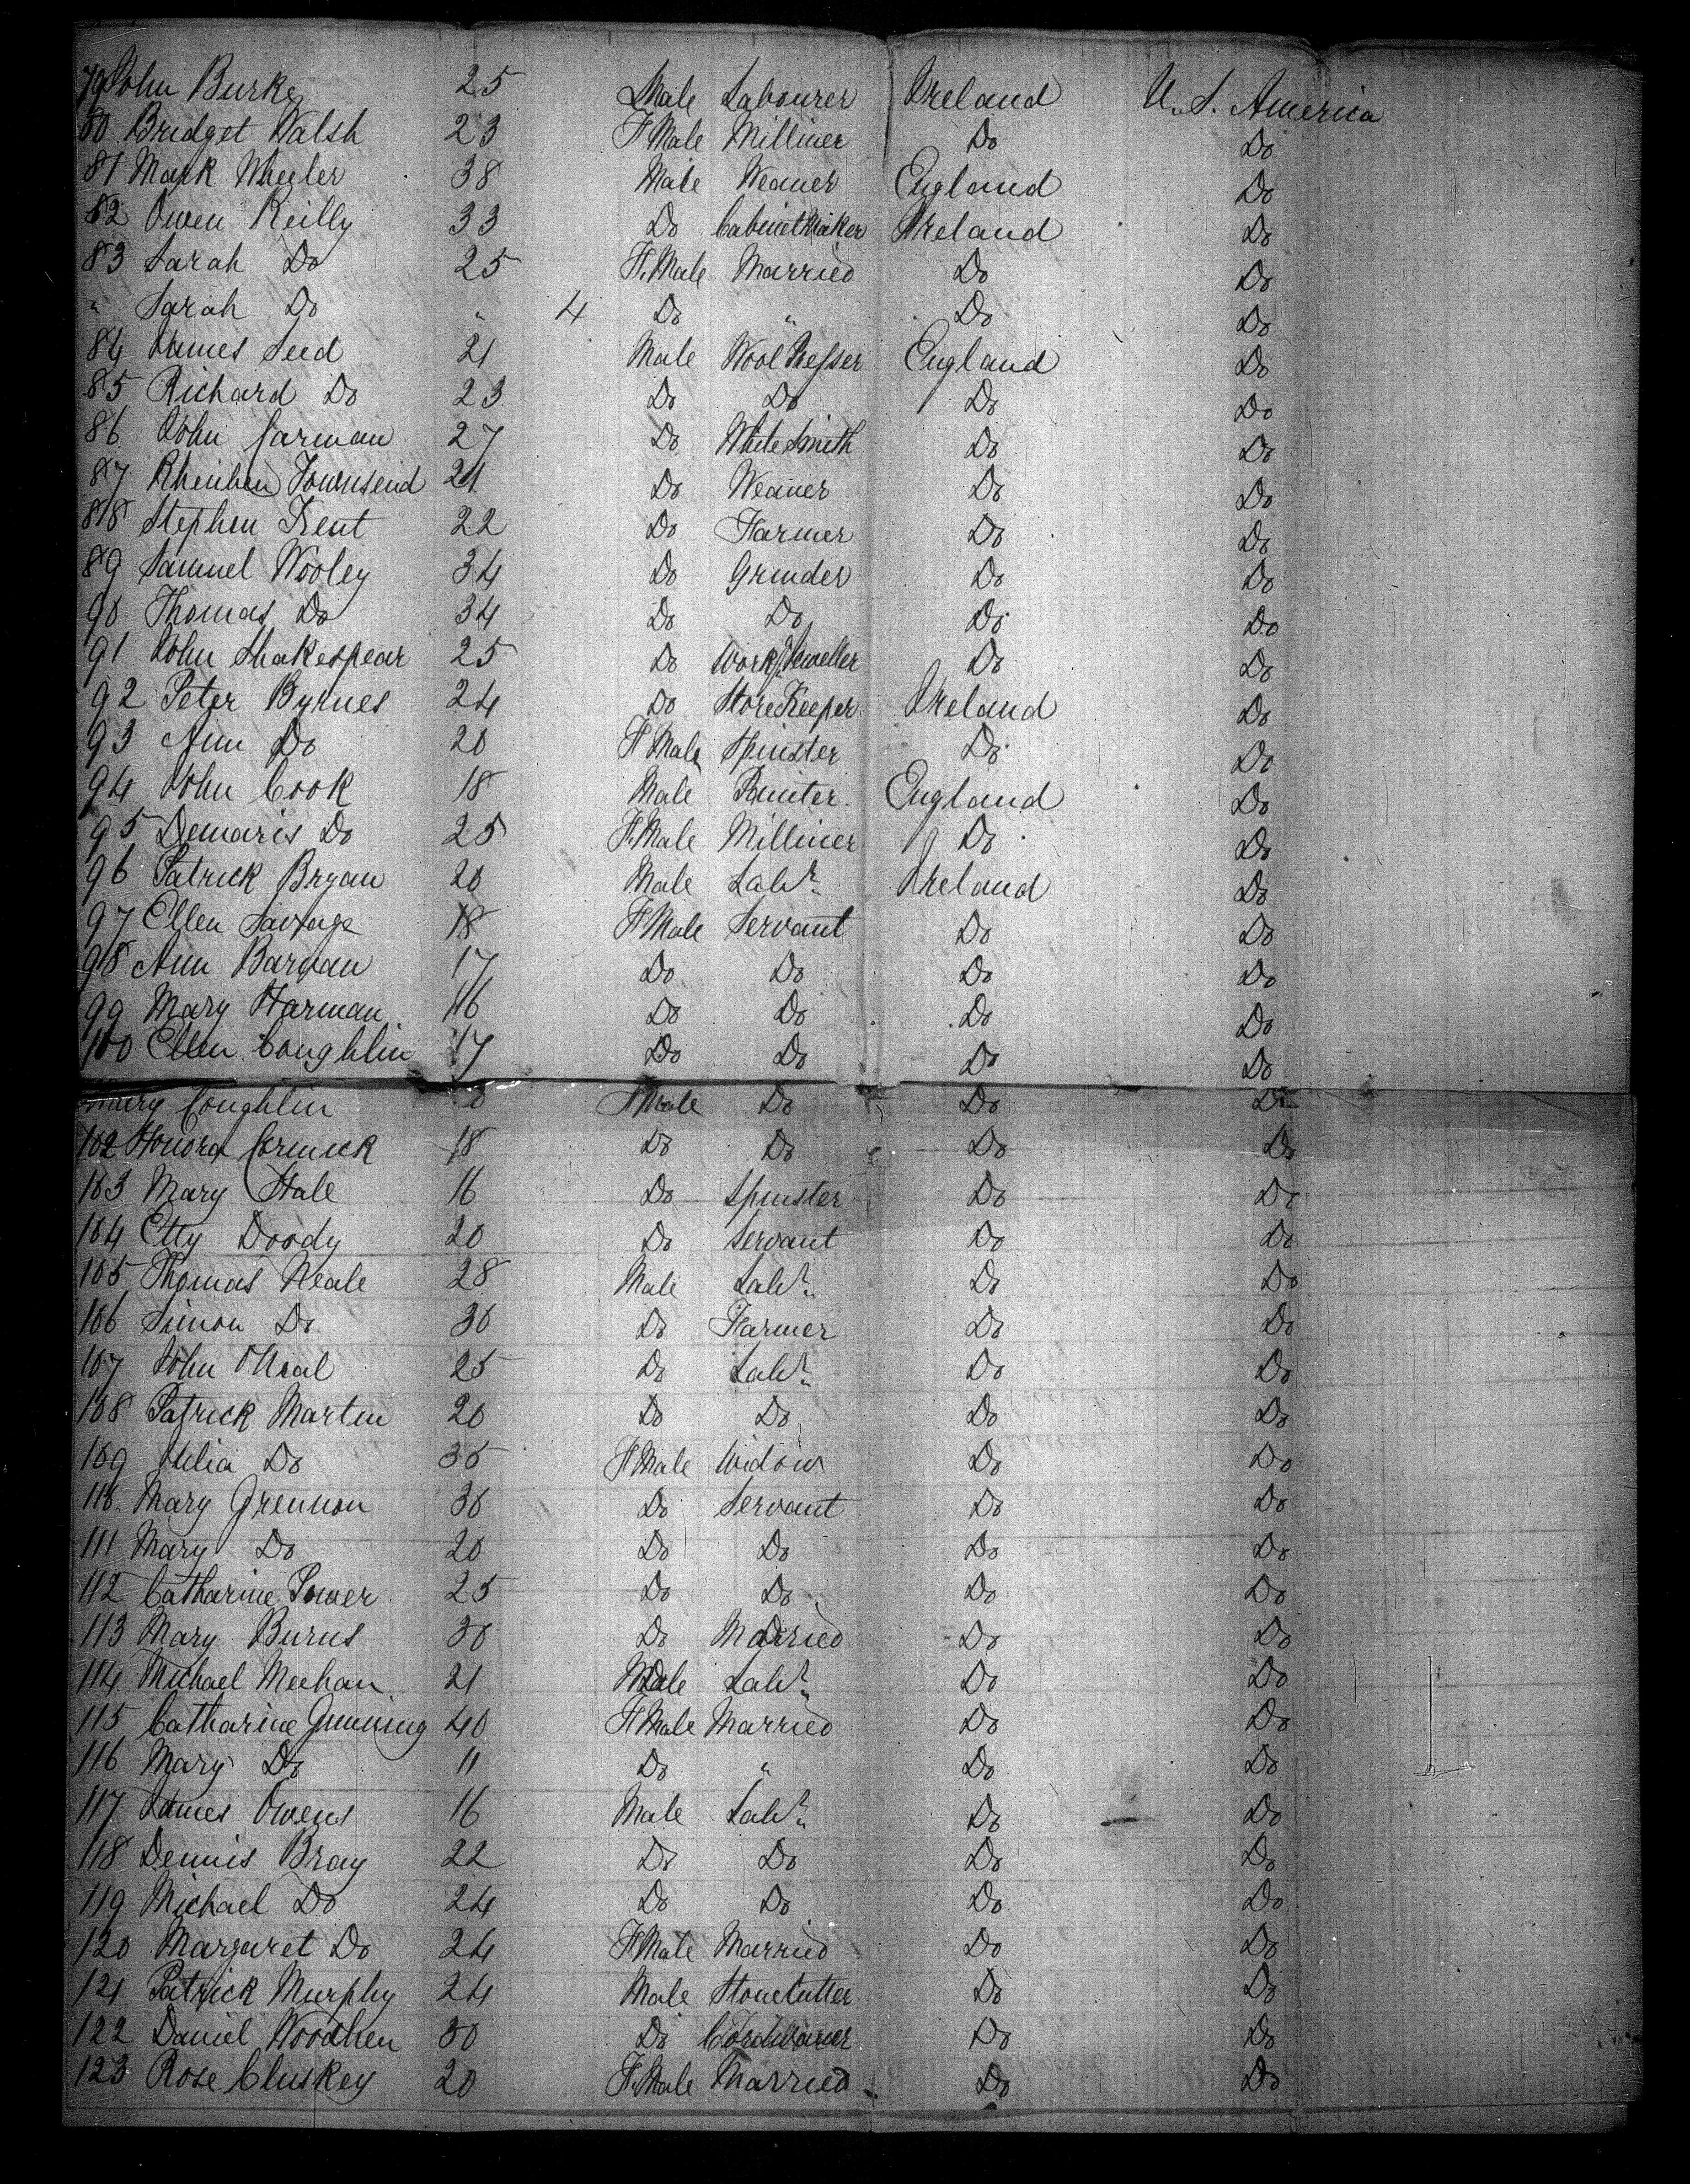 79 John Burke 25 Male Labourer Ireland U.S. America
80 Bridget Walsh 23 F Male Milliner Do Do
81 Mark Wheeler 38 Male Weaver England Do
82 Owen Reilly 33 Do Cabinet Maker Ireland Do
83 Sarah Do 25 F. Male Married Do Do
" Sarah Do " 4 Do " Do Do
84 James Seed 21 Male Wool Presser England Do
85 Richard Do 23 Do Do Do Do
86 John Carman 27 Do White Smith Do Do
87 Rheuben Townsend 21 Do Weaver Do Do
88 Stephen Kent 22 Do Farmer Do Do
89 Samuel Wooley 34 Do Grinder Do Do
90 Thomas Do 34 Do Do Do Do
91 John Shakespear 25 Do Work.g Jeweller Do Do
92 Peter Byrnes 24 Do Store Keeper Ireland Do
93 Ann Do 20 F Male Spinster Do Do
94 John Cook 18 Male Painter England Do
95 Demaris Do 25 F. Male Milliner Do Do
96 Patrick Bryan 20 Male Labr. Ireland Do
97 Ellen Savage 18 F Male Servant Do Do
98 Ann Do 17 Do Do Do Do
99 Mary Harman 16 Do Do Do Do
100 Ellen Coughlin 17 Do Do Do Do
Mary Coughlin F Male Do Do Do
102 Honora Cormick 18 Do Do Do Do
103 Mary Hale 16 Do Spinster Do Do
104 Etty Doody 20 Do Servant Do Do
105 Thomas Neale 28 Male Labr. Do Do
106 Simon Do 30 Do Farmer Do Do
107 John ONeal 25 Do Labr. Do Do
108 Patrick Martin 20 Do Do Do Do
109 Julia Do 35 F Male Widow Do Do
110 Mary Grennon 30 Do Servant Do Do
111 Mary Do 20 Do Do Do Do
112 Catharine Power 25 Do Do Do Do
113 Mary Burns 30 Do Married Do Do
114 Michael Meehan 21 Male Labr. Do Do
115 Catharine Gunning 40 F Male Married Do Do
116 Mary Do 11 Do " Do Do
117 James Owens 16 Male Labr. Do Do
118 Dennis Bray 22 Do Do Do Do
119 Michael Do 24 Do Do Do Do
120 Margaret Do 24 F Male Married Do Do
121 Patrick Murphy 24 Male Stonecutter Do Do
122 Daniel Woodhen 30 Do Cordwainer Do Do
123 Rose Cluskey 20 F. Male Married Do Do